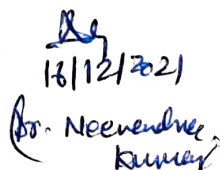 18/12/2021
(Dr. Neerendra
Kumar)